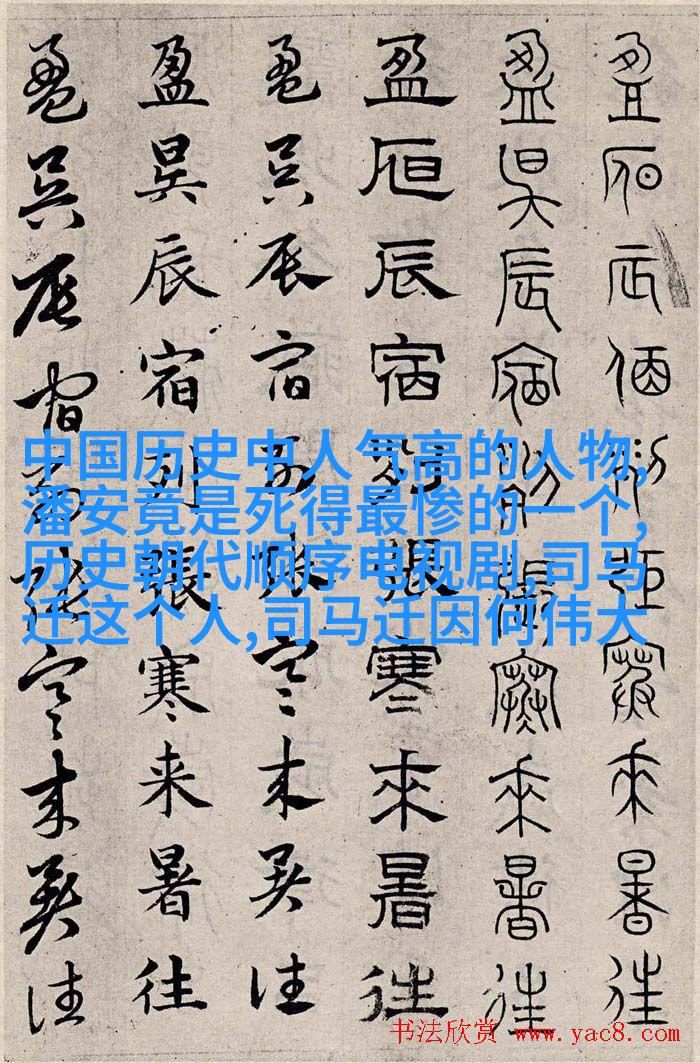 盈昃辰宿列張寒來暑往
盈昃辰宿列張寒來暑往
盈昃辰宿列張寒來暑往
盈昃辰宿列張寒来暑往
盈昃辰宿列張寒来暑往
盈昃辰宿列張寒来暑往
中国历史中人气高的人物,
潘安竟是死得最惨的一个,
历史朝代顺序电视剧,司马
迁这个人,司马迁因何伟大
书法欣赏 www.yac8.com